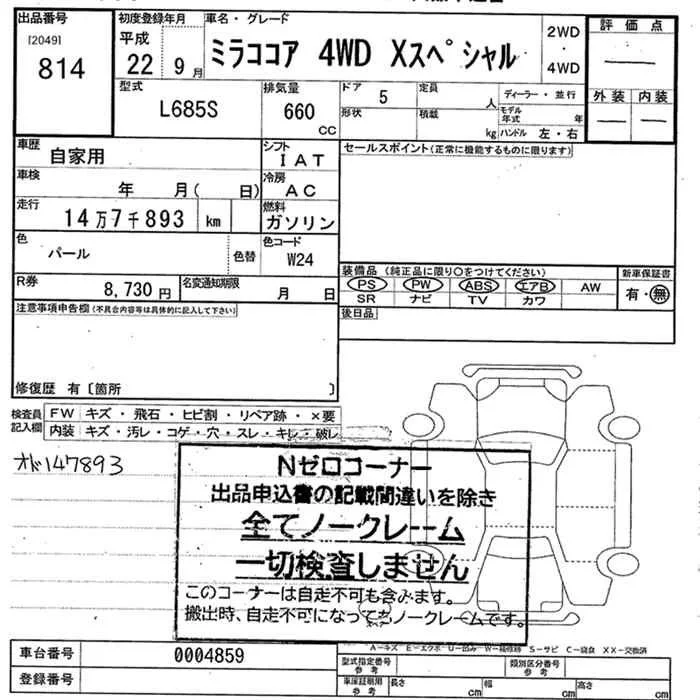 出品番号
[2049]
814
初度登録年月
平成
22年 9月
車名・グレード
ミラココア 4WD Xスペシャル
2WD
・
4WD
評価点
外装 内装
型式
L685S
排気量
660
CC
ドア 5
定員 人
ディーラー・並行
形状
積載 kg
モデル年式 年
ハンドル 左・右
車歴
自家用
シフト
IAT
セールスポイント(正常に機能するものに限ります)
車検
年 月( 日)
冷房
AC
走行
14万7千893 km
燃料
ガソリン
色
パール
色替
色コード
W24
装備品(純正品に限り○をつけてください)
新車保証書
PS PW ABS エアB AW
有・無
SR ナビ TV カワ
R券
8,730円
名変通知期限
月 日
後日品
注意事項申告欄(不具合内容等は具体的に記入して下さい)
修復歴 有〔箇所 〕
検査員記入欄
FW キズ・飛石・ヒビ割・リペア跡・×要
内装 キズ・汚レ・コゲ・穴・スレ・キレ・破レ
オド147893
Nゼロコーナー
出品申込書の記載間違いを除き
全てノークレーム
一切検査しません
このコーナーは自走不可も含みます。
搬出時、自走不可になってもノークレームです。
スペア
A-キズ E-エクボ U-凹み W-補修跡 S-サビ C-腐食 XX-交換済
車台番号 0004859
登録番号
型式指定番号
参考
類別区分番号
参考
車庫証明用
参考
長さ cm
幅 cm
高さ cm